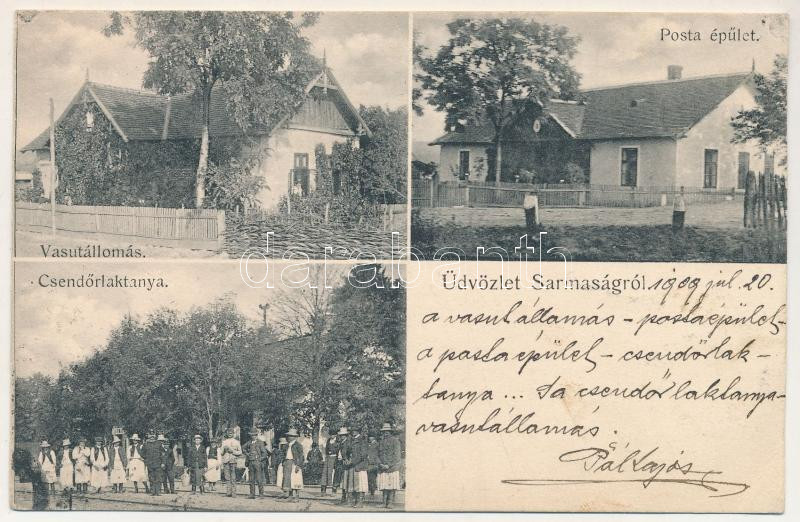 Posta épület.
Vasutállomás.
Csendőrlaktanya.
darabanth
Üdvözlet Sarmaságról. 1909 jul. 20.
a vasutállomás – postaépület
a postaépület – csendőrlak-
tanya ... s a csendőrlaktanya-
vasutállomás.
Pál Lajos